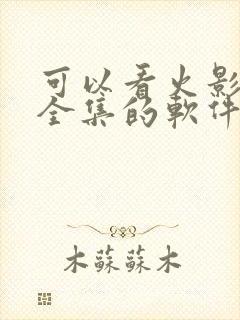 可以看火影
全集的軟件
木蘇蘇木